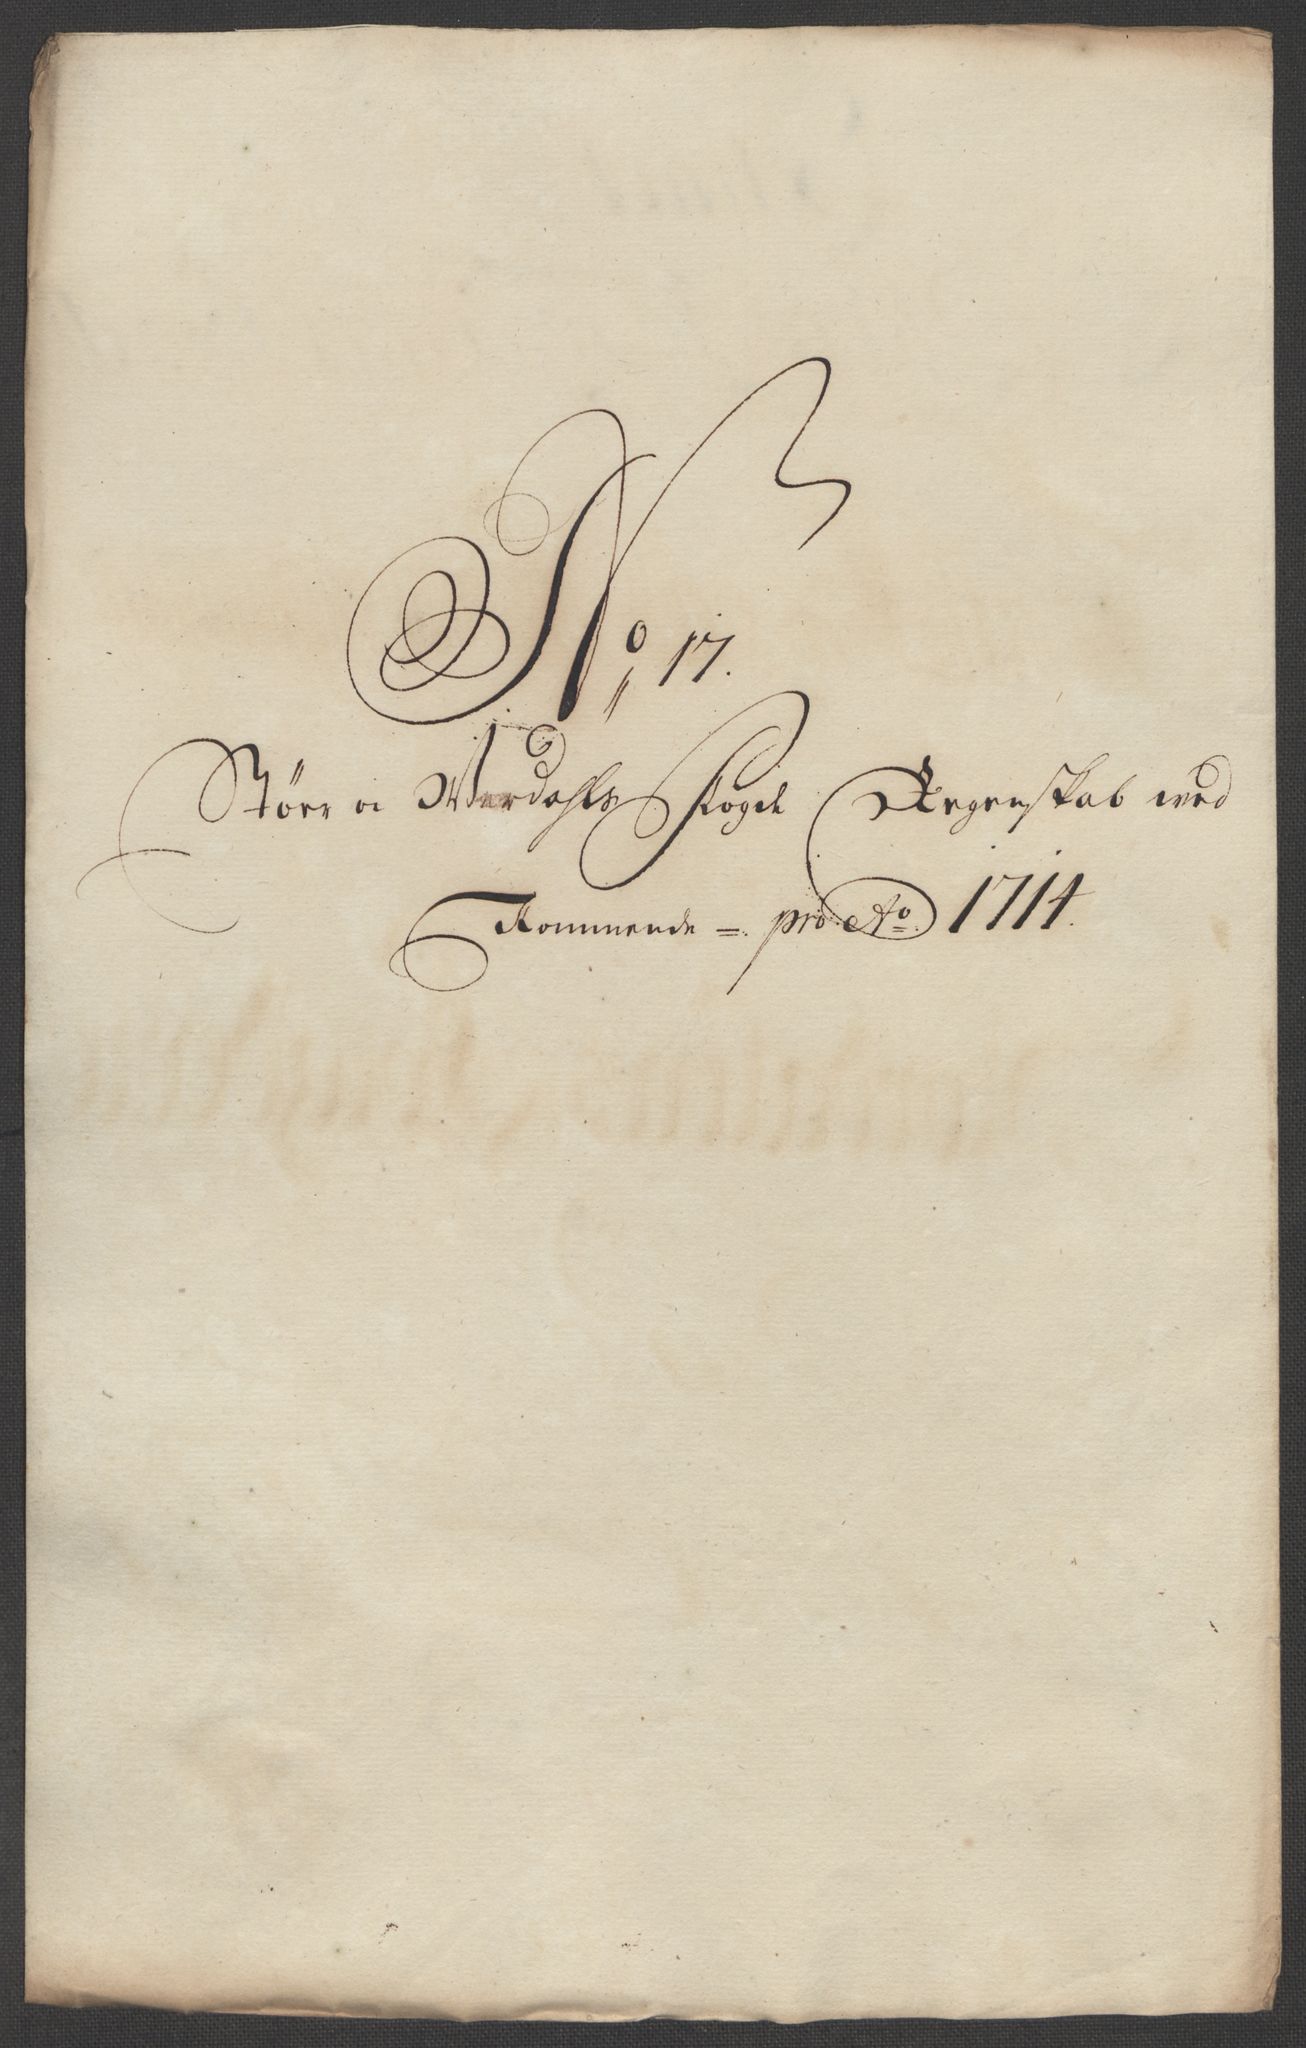 No 17.
Støer oc Werdahls Fogde Regenskab ved
Kommende =. pro Ao 1714.